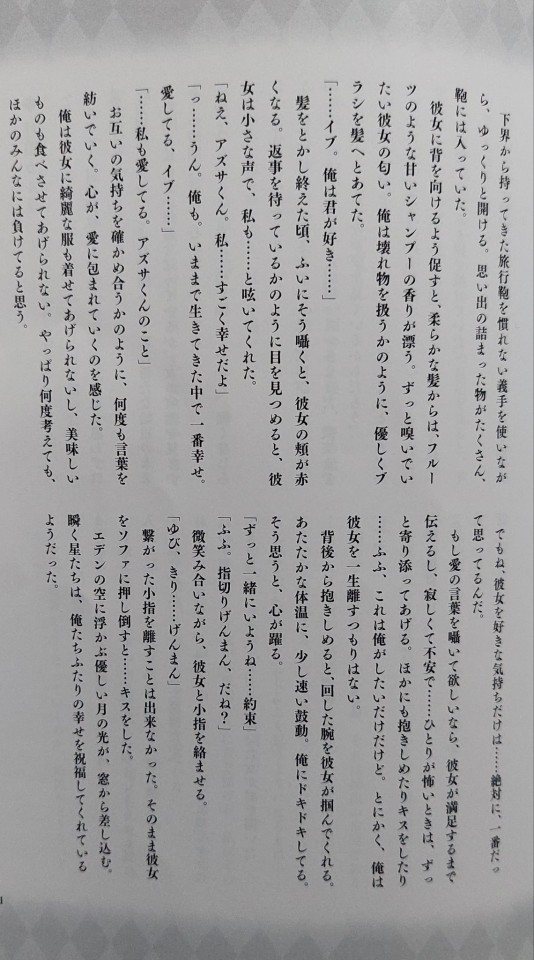 下界から持ってきた旅行鞄を慣れない義手を使いなが
ら、ゆっくりと開ける。思い出の詰まった物がたくさん、
鞄には入っていた。
彼女に背を向けるよう促すと、柔らかな髪からは、フルー
ツのような甘いシャンプーの香りが漂う。ずっと嗅いでい
たい彼女の匂い。俺は壊れ物を扱うかのように、優しくブ
ラシを髪へとあてた。
「……イブ。俺は君が好き……」
髪をとかし終えた頃、ふいにそう囁くと、彼女の頬が赤
くなる。返事を待っているかのように目を見つめると、彼
女は小さな声で、私も……と呟いてくれた。
「ねえ、アズサくん。私……すごく幸せだよ」
「っ……うん。俺も。いままで生きてきた中で一番幸せ。
愛してる、イブ……」
「……私も愛してる。アズサくんのこと」
お互いの気持ちを確かめ合うかのように、何度も言葉を
紡いでいく。心が、愛に包まれていくのを感じた。
俺は彼女に綺麗な服も着せてあげられないし、美味しい
ものも食べさせてあげられない。やっぱり何度考えても、
ほかのみんなには負けてると思う。
でもね、彼女を好きな気持ちだけは……絶対に、一番だっ
て思ってるんだ。
もし愛の言葉を囁いて欲しいなら、彼女が満足するまで
伝えるし、寂しくて不安で……ひとりが怖いときは、ずっ
と寄り添ってあげる。ほかにも抱きしめたりキスをしたり
……ふふ、これは俺がしたいだけだけど。とにかく、俺は
彼女を一生離すつもりはない。
背後から抱きしめると、回した腕を彼女が掴んでくれる。
あたたかな体温に、少し速い鼓動。俺にドキドキしてる。
そう思うと、心が躍る。
「ずっと一緒にいようね……約束」
「ふふ。指切りげんまん、だね？」
微笑み合いながら、彼女と小指を絡ませる。
「ゆび、きり……げんまん」
繋がった小指を離すことは出来なかった。そのまま彼女
をソファに押し倒すと……キスをした。
エデンの空に浮かぶ優しい月の光が、窓から差し込む。
瞬く星たちは、俺たちふたりの幸せを祝福してくれている
ようだった。